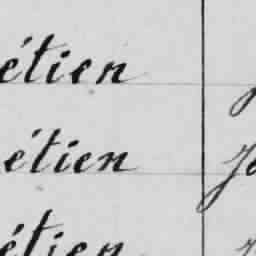 étien
étien
étien